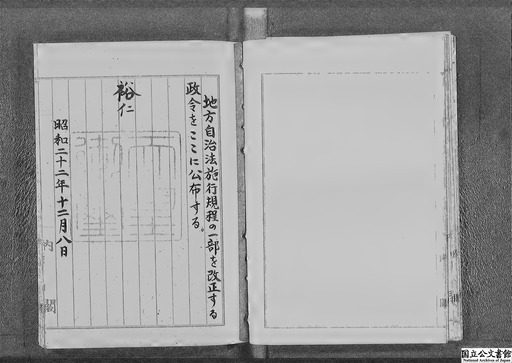 地方自治法施行規程の一部を改正する
政令をここに公布する。
裕仁
昭和二十二年十二月八日
内閣
国立公文書館
National Archives of Japan